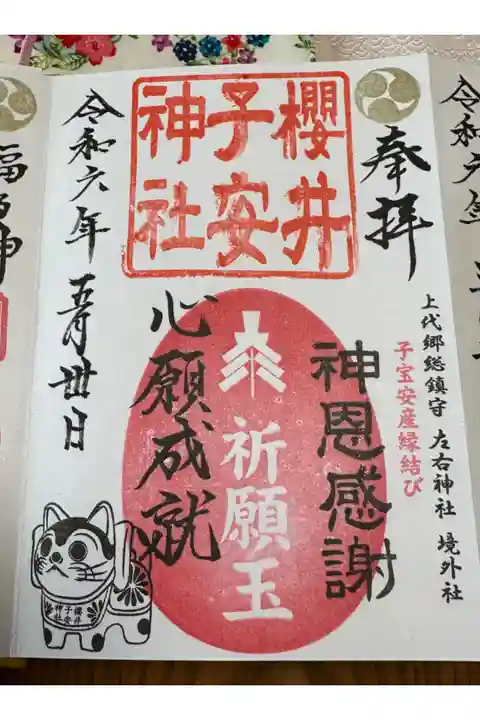 奉拝
櫻井
子安
神社
上代郷総鎮守 左右神社 境外社
子宝安産縁結び
神恩感謝
祈願玉
心願成就
令和六年 五月卅日
櫻井
子安
神社
令和六年